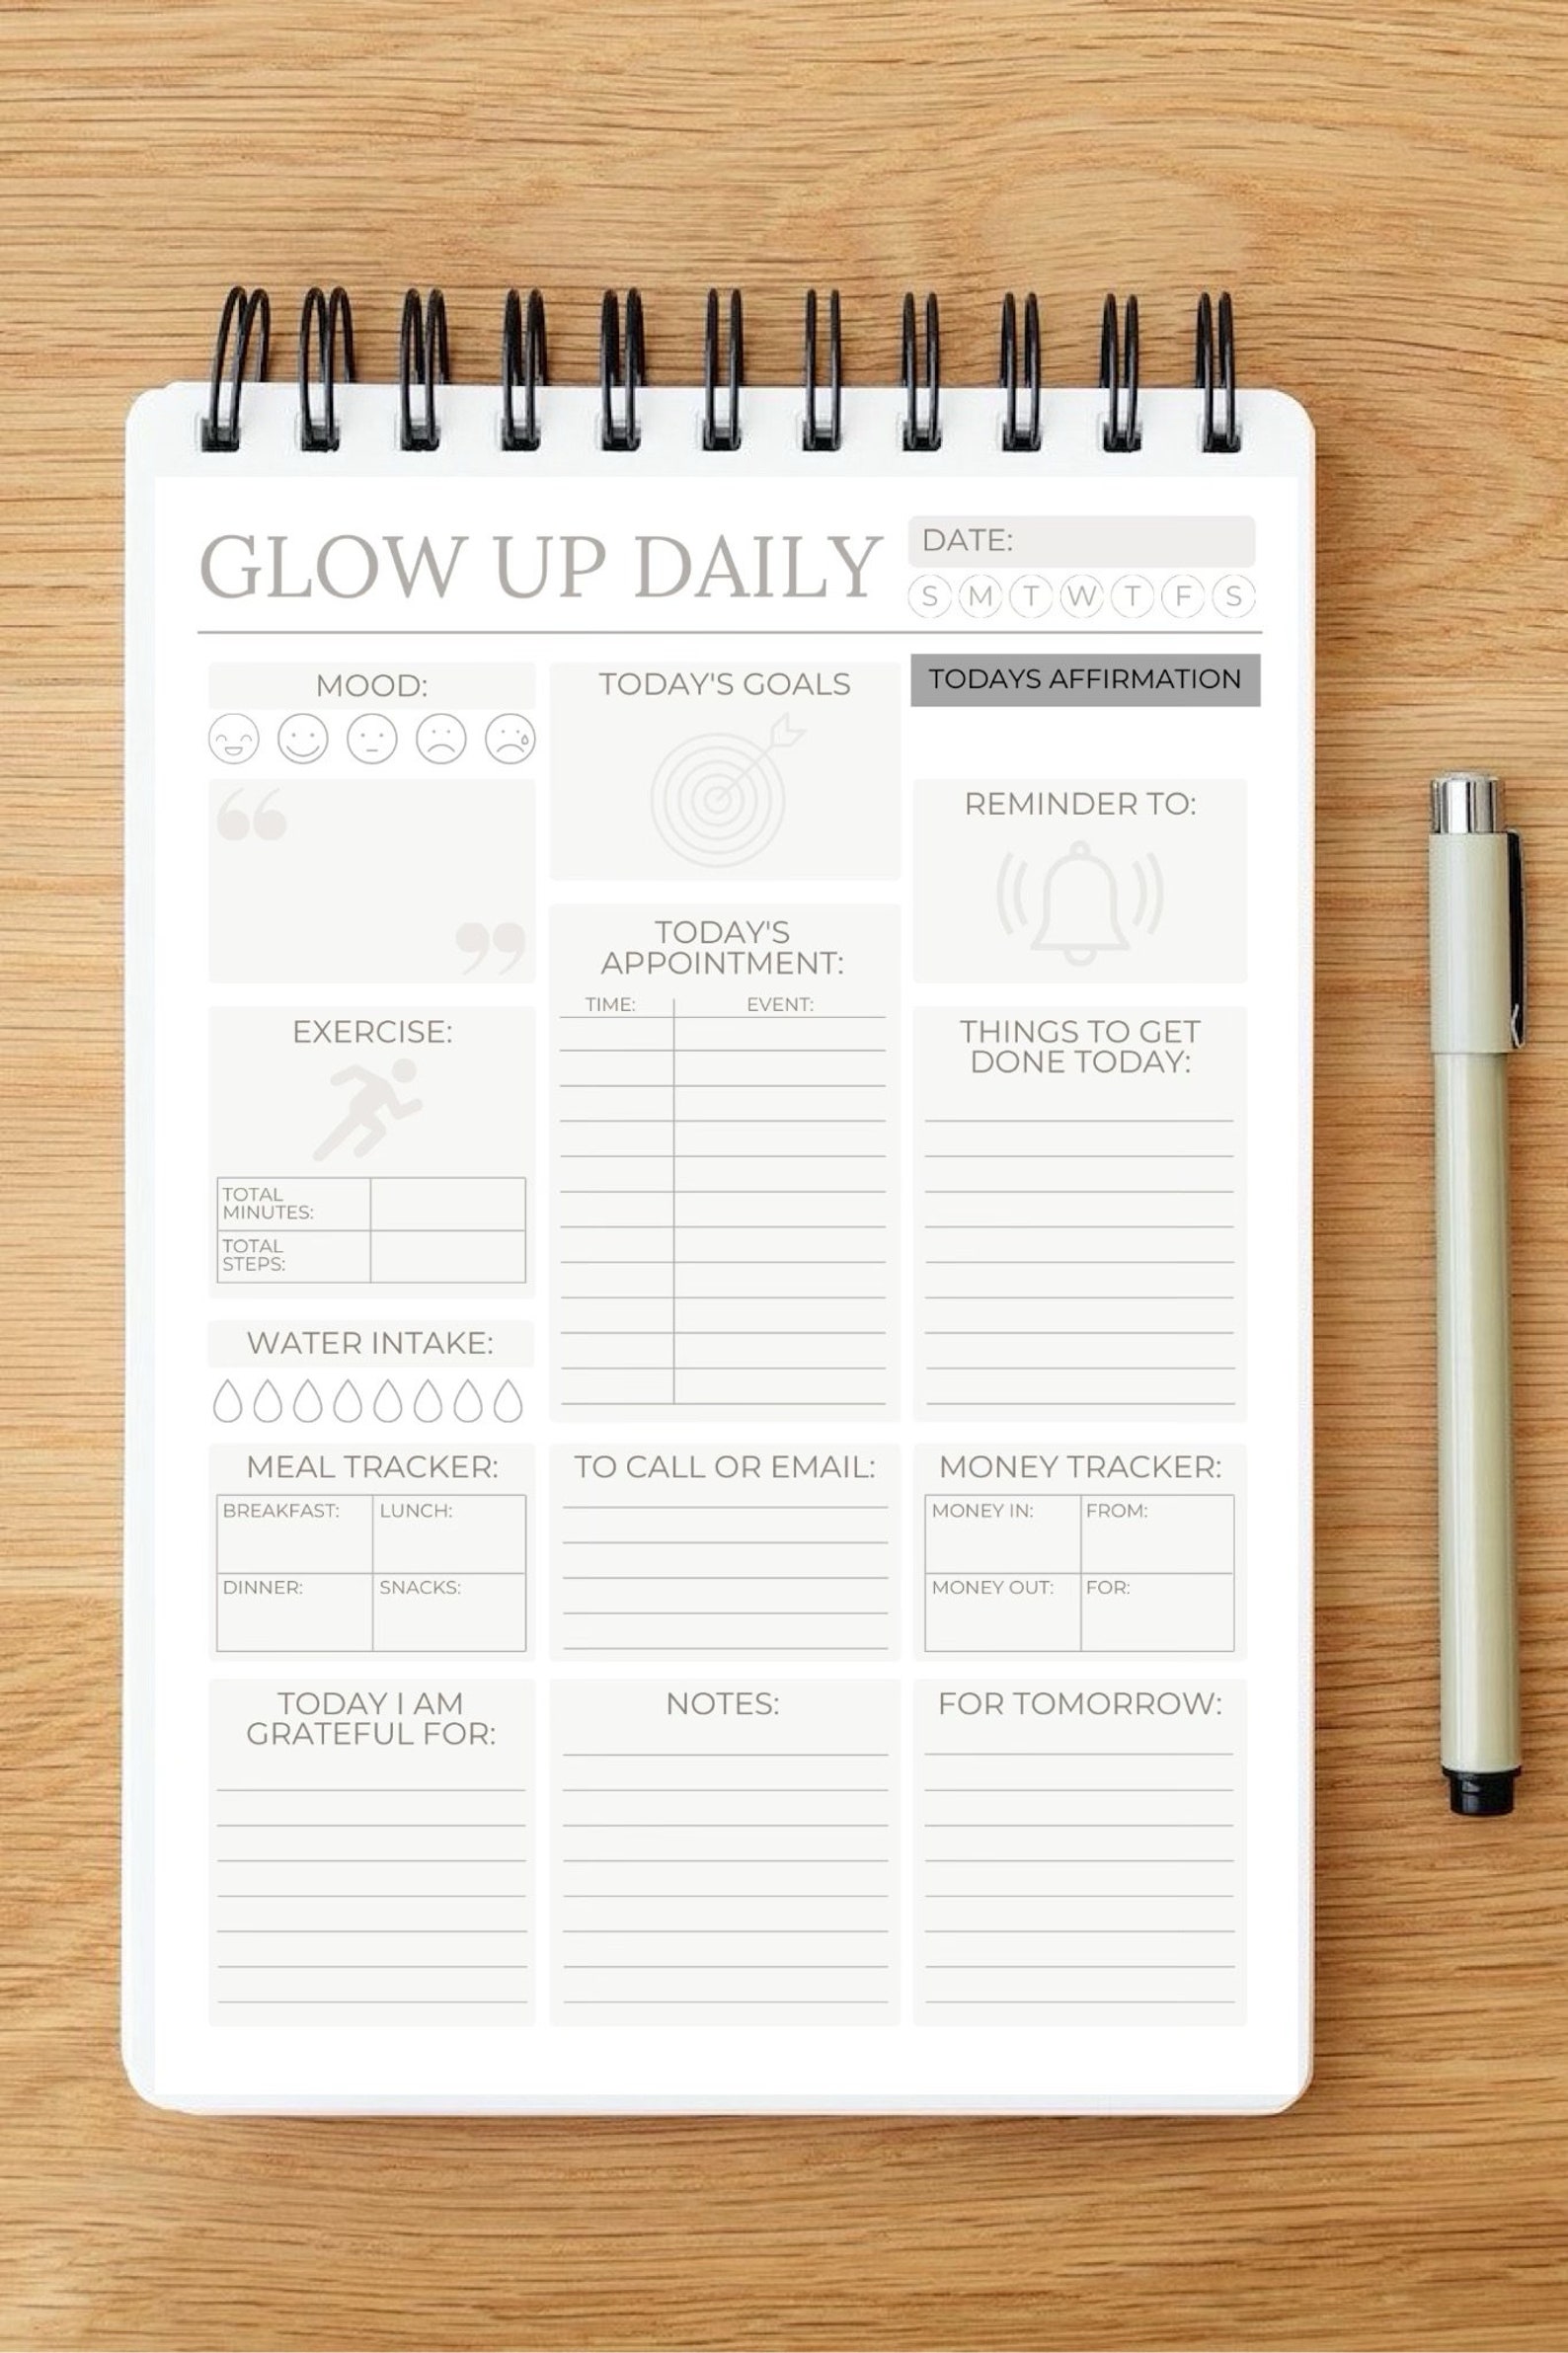 GLOW UP DAILY
DATE:
S M T W T F S
MOOD:
TODAY'S GOALS
TODAYS AFFIRMATION
REMINDER TO:
TODAY'S
APPOINTMENT:
TIME: EVENT:
EXERCISE:
TOTAL
MINUTES:
TOTAL
STEPS:
THINGS TO GET
DONE TODAY:
WATER INTAKE:
MEAL TRACKER:
BREAKFAST: LUNCH:
DINNER: SNACKS:
TO CALL OR EMAIL:
MONEY TRACKER:
MONEY IN: FROM:
MONEY OUT: FOR:
TODAY I AM
GRATEFUL FOR:
NOTES:
FOR TOMORROW: